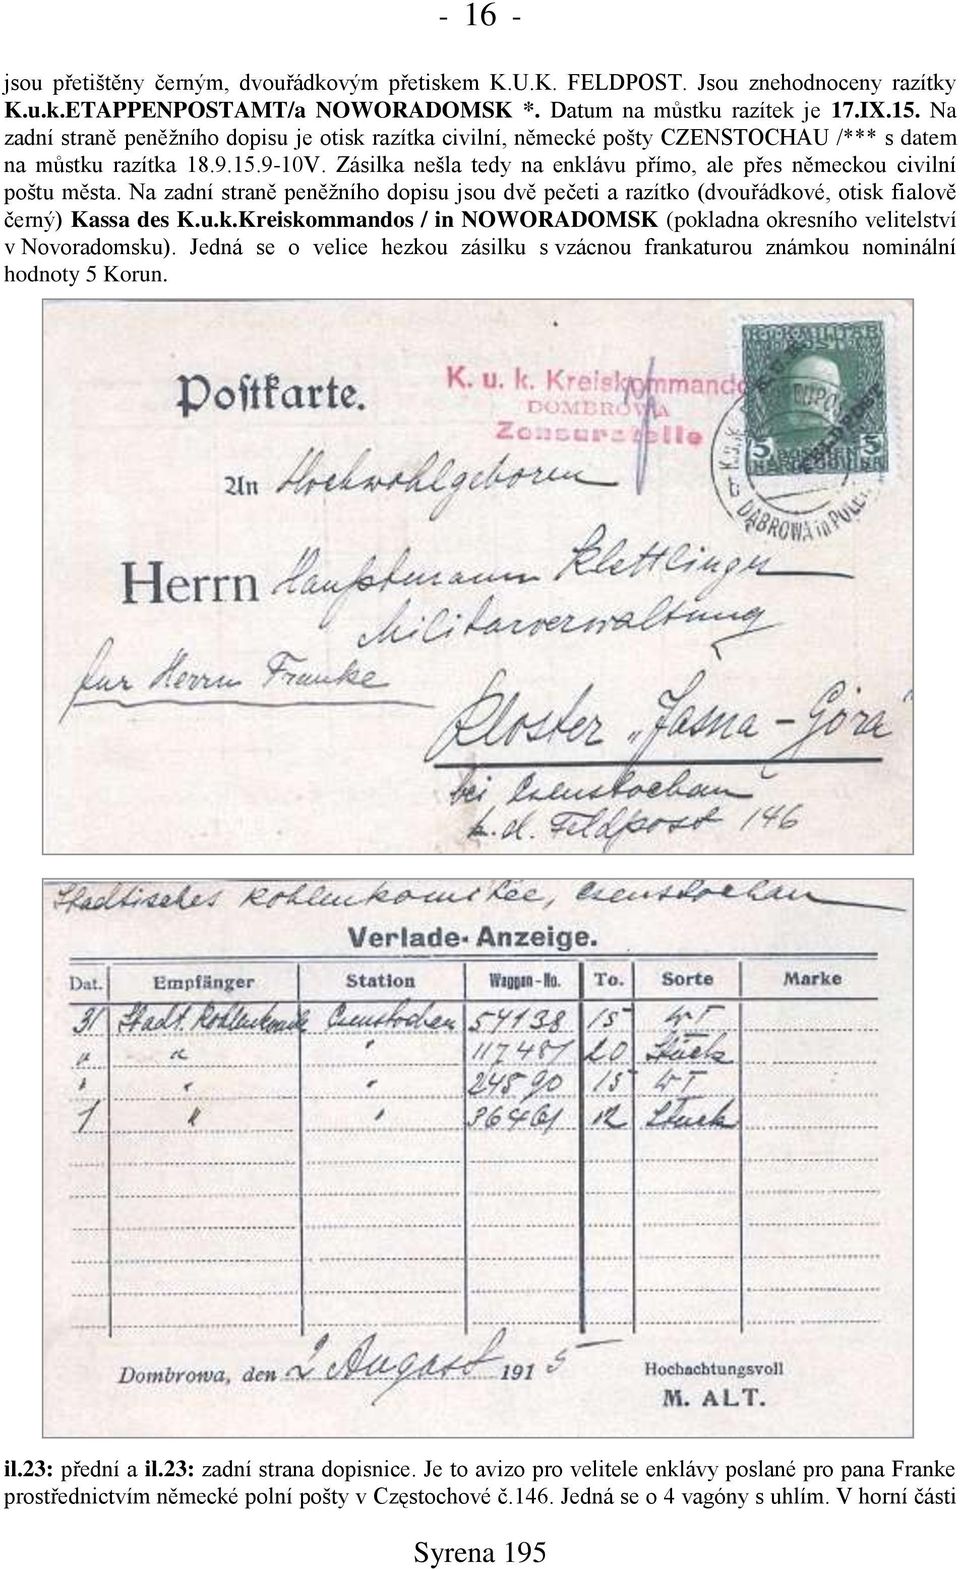 - 16 -
jsou přetištěny černým, dvouřádkovým přetiskem K.U.K. FELDPOST. Jsou znehodnoceny razítky
K.u.k.ETAPPENPOSTAMT/a NOWORADOMSK *. Datum na můstku razítek je 17.IX.15. Na
zadní straně peněžního dopisu je otisk razítka civilní, německé pošty CZENSTOCHAU /*** s datem
na můstku razítka 18.9.15.9-10V. Zásilka nešla tedy na enklávu přímo, ale přes německou civilní
poštu města. Na zadní straně peněžního dopisu jsou dvě pečeti a razítko (dvouřádkové, otisk fialově
černý) Kassa des K.u.k.Kreiskommandos / in NOWORADOMSK (pokladna okresního velitelství
v Novoradomsku). Jedná se o velice hezkou zásilku s vzácnou frankaturou známkou nominální
hodnoty 5 Korun.
Postkarte.
K. u. k. Kreiskommando
DOMBROWA
Zensurstelle
K.u.K. MILITÄR
POST
5 5
DĄBROWA in POLEN
An Hochwohlgeboren
Herrn Hauptmann Klettlinger
Militärverwaltung
für Herrn Franke
Kloster „Jasna-Góra"
bei Csenstochau
k.d. Feldpost 146
Stadtisches Kohlenkomitée, Csenstochau
Verlade-Anzeige.
Dat. Empfänger Station Waggon-No. To. Sorte Marke
31 Stadt. Kohlenkomite Csenstochau 54138 15 W I
" " " 117481 20 Stück
" " " 24890 15 W I
1 " " 36461 12 Stück
Dombrowa, den 2 August 1915
Hochachtungsvoll
M. ALT.
il.23: přední a il.23: zadní strana dopisnice. Je to avizo pro velitele enklávy poslané pro pana Franke
prostřednictvím německé polní pošty v Częstochové č.146. Jedná se o 4 vagóny s uhlím. V horní části
Syrena 195